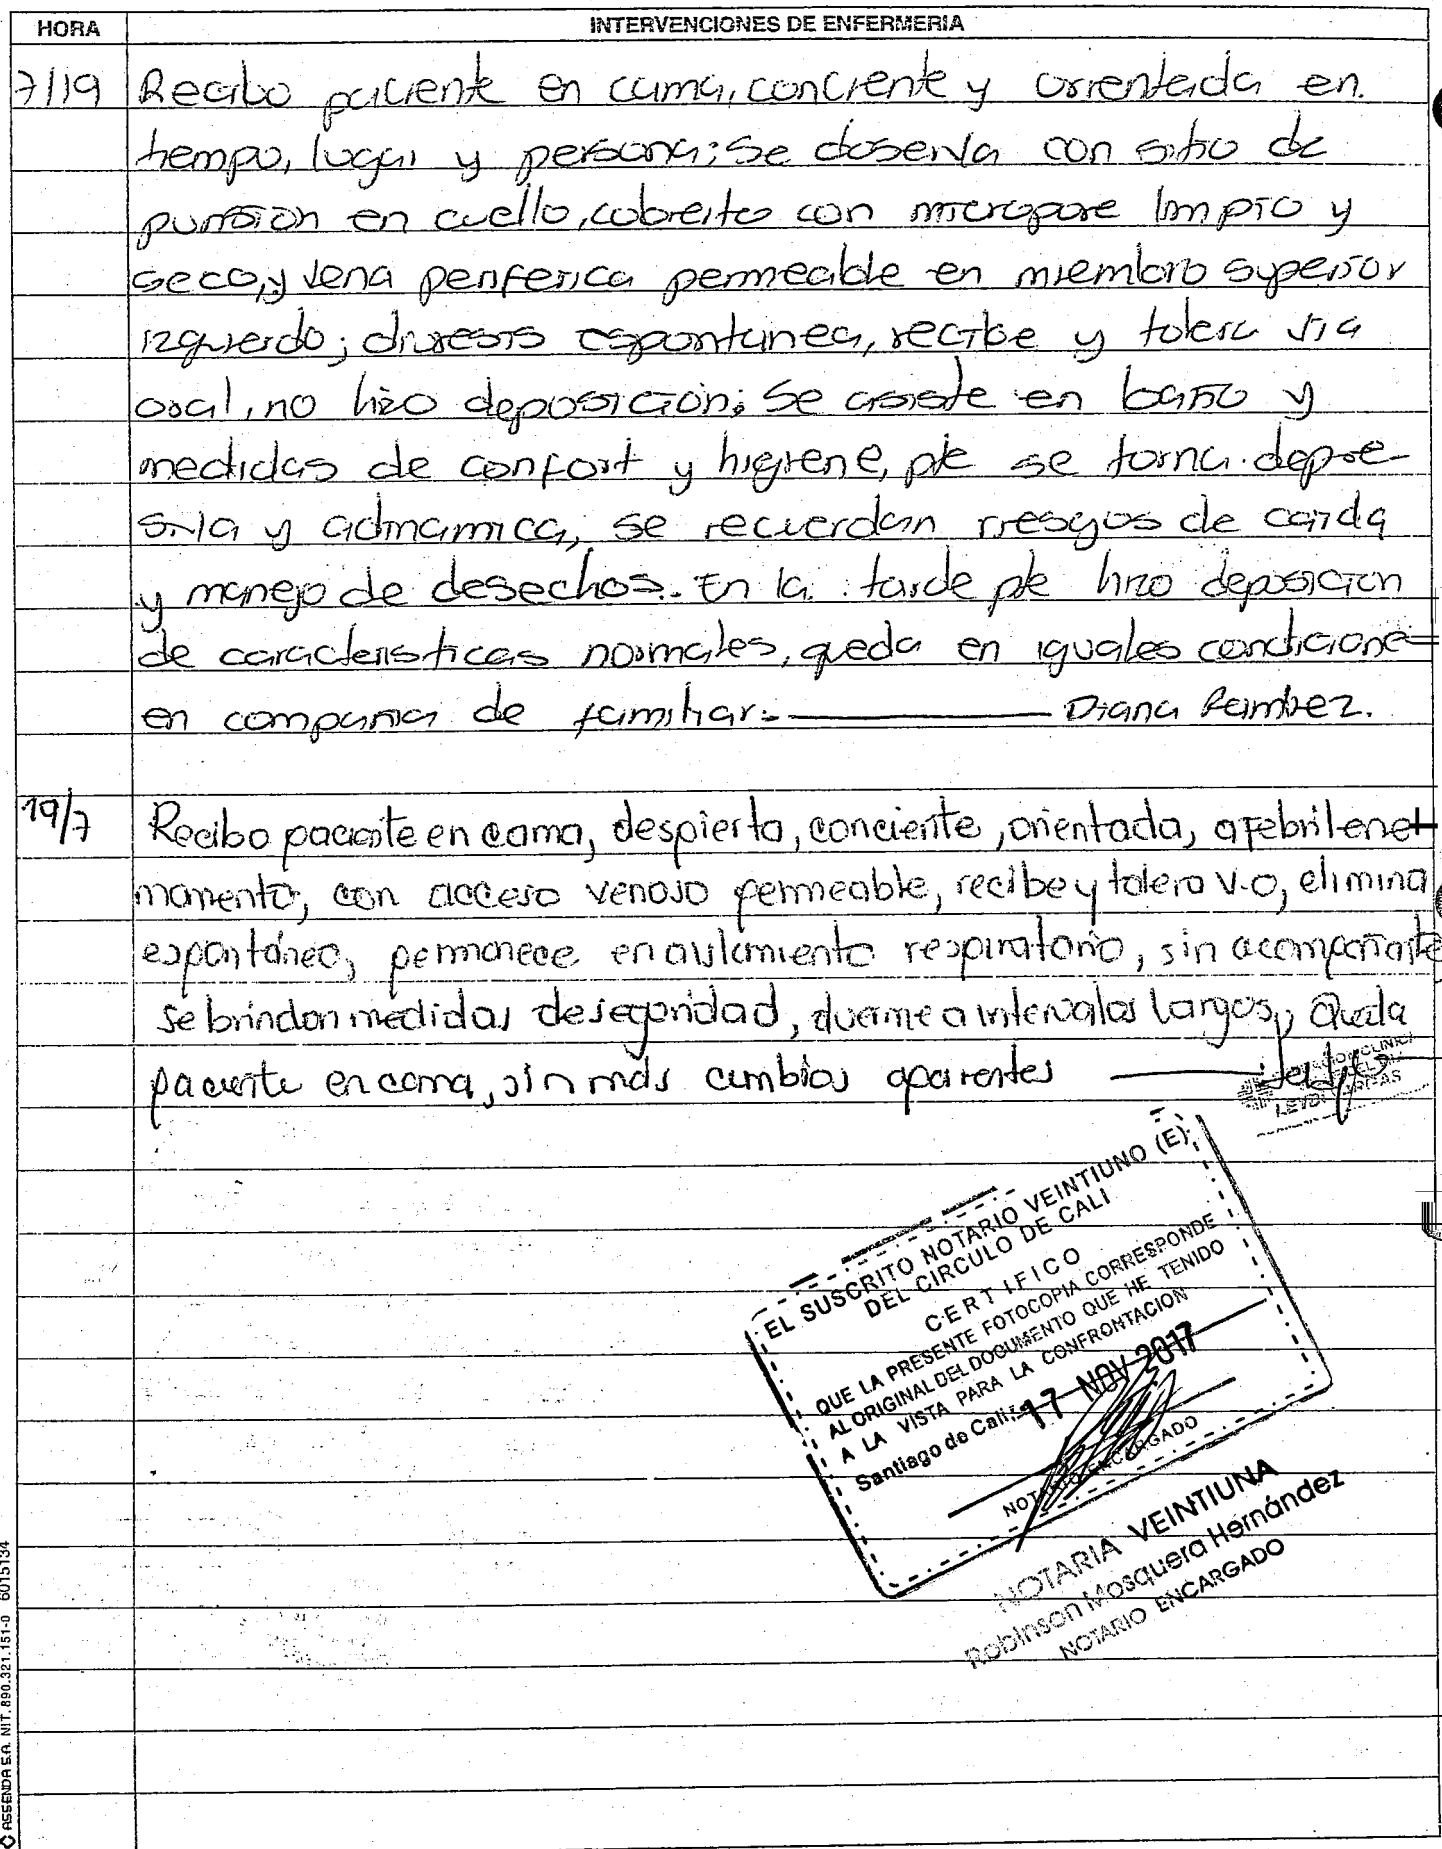 HORA INTERVENCIONES DE ENFERMERIA
7/19 Recibo paciente en cama, conciente y orientada en
tiempo, lugar y persona; se observa con sitio de
punsion en cuello, cubierto con micropore limpio y
seco, y vena periferica permeable en miembro superior
izquierdo; diuresis espontanea, recibe y tolera via
oral, no hizo deposición; se asiste en baño y
medidas de confort y higiene, pte se torna depre-
siva y adinamica, se recuerdan riesgos de caida
y manejo de desechos. En la tarde pte hizo deposicion
de caracteristicas normales, queda en iguales condicione
en compania de familiar. Diana Ramirez.
19/7 Recibo paciente en cama, despierta, conciente, orientada, afebril en el
momento, con acceso venoso permeable, recibe y tolera v.o, elimina
espontáneo, permanece en aislamiento respiratorio, sin acompañante
se brindan medidas de seguridad, duerme a intervalos largos, Queda
paciente en cama, sin más cambios aparentes
EL SUSCRITO NOTARIO VEINTIUNO (E)
DEL CIRCULO DE CALI
CERTIFICO
QUE LA PRESENTE FOTOCOPIA CORRESPONDE
AL ORIGINAL DEL DOCUMENTO QUE HE TENIDO
A LA VISTA PARA LA CONFRONTACION
Santiago de Cali, 17 NOV 2017
NOTARIO ENCARGADO
NOTARIA VEINTIUNA
Robinson Mosquera Hernández
NOTARIO ENCARGADO
ASSENDA S.A. NIT. 890.321.151-0 6015134